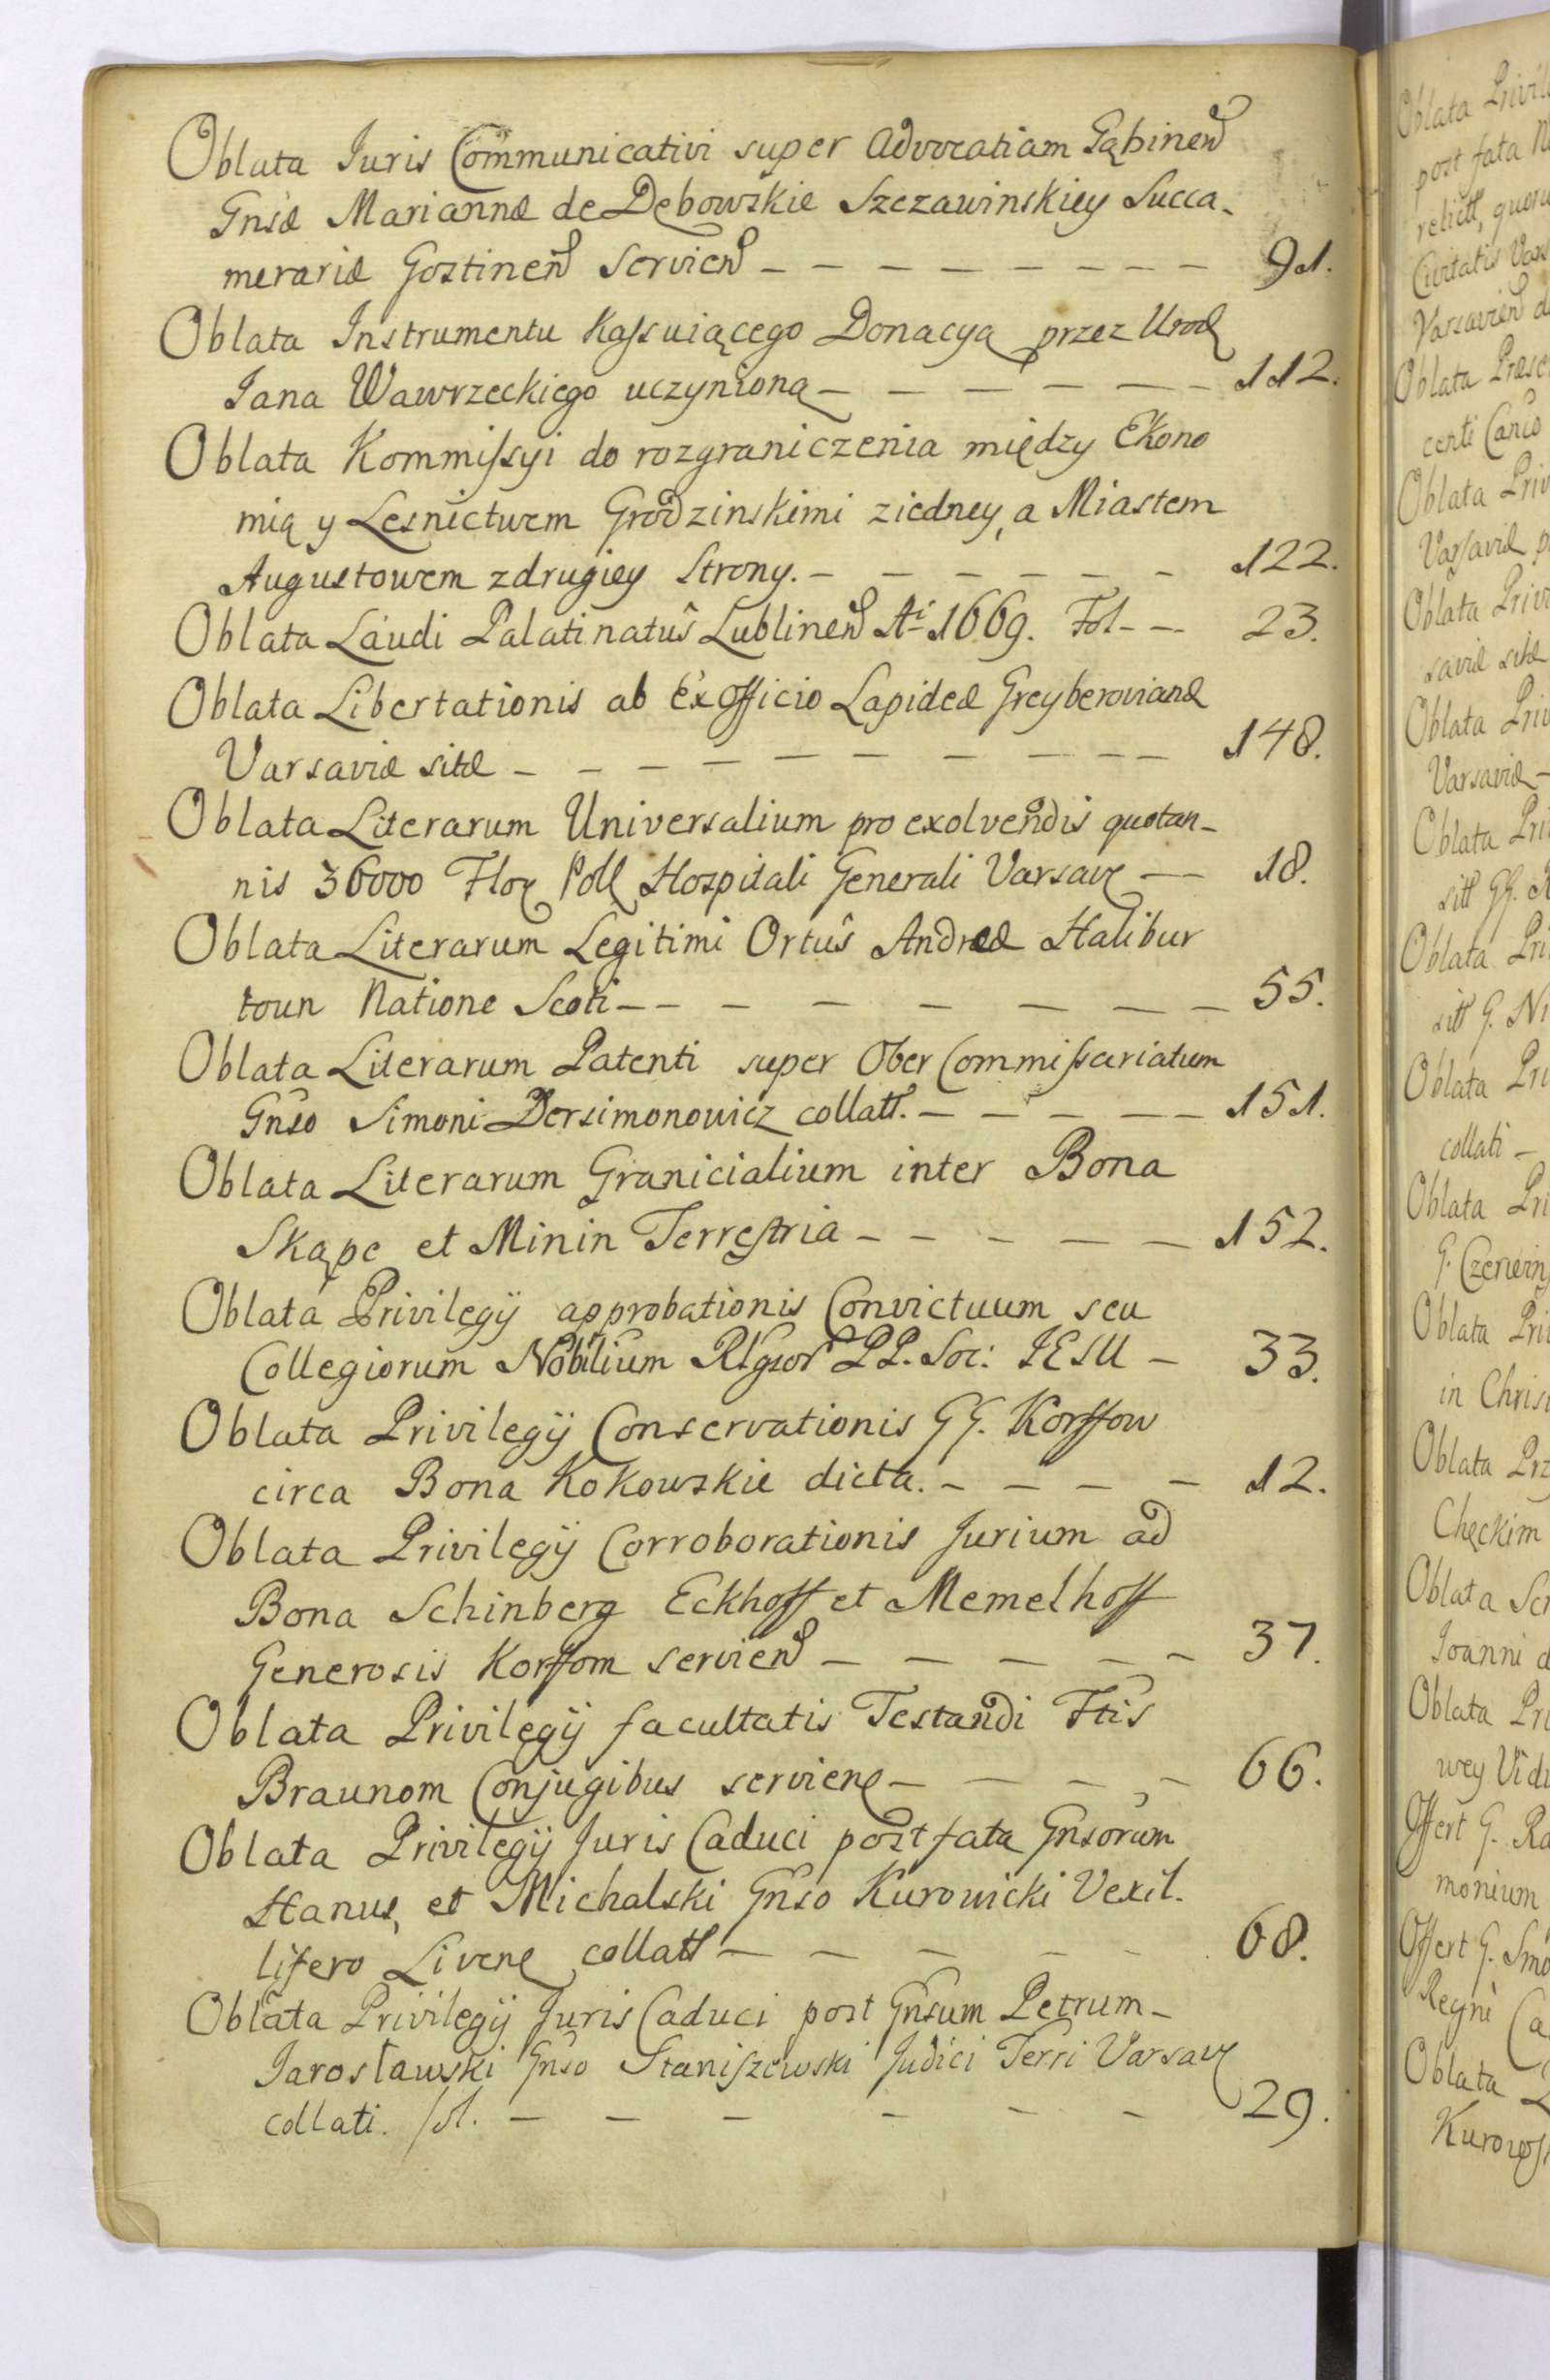 Oblata Juris Communicativi super Advocatiam Gąbinen
Gnsæ Mariannæ de Dębowskie Szczawinskiey Succa-
merariæ Gostinen servien — 91.
Oblata Instrumentu Kassuiącego Donacyą przez Urod
Jana Wawrzeckiego uczynioną — 112.
Oblata Kommissyi do rozgraniczenia między Ekono
mią y Lesnictwem Grodzinskimi ziedney, a Miastem
Augustowem zdrugiey Strony. — 122.
Oblata Laudi Palatinatûs Lublinen Ai 1669. Fol — 23.
Oblata Libertationis ab Exofficio Lapideæ Greyberovianæ
Varsaviæ sitæ — 148.
Oblata Literarum Universalium pro exolvendis quotan-
nis 36000 Flor Poll Hospitali Generali Varsav — 18.
Oblata Literarum Legitimi Ortûs Andreæ Halibur
toun Natione Scoti — 55.
Oblata Literarum Patenti super Ober Commissariatum
Gnso Simoni Dersimonowicz collatt. — 151.
Oblata Literarum Granicialium inter Bona
Skąpe et Minin Terrestria — 152.
Oblata Privilegij approbationis Convictuum seu
Collegiorum Nobilium Rlgsor PP. Soc: IESU — 33.
Oblata Privilegij Conservationis GG. Korffow
circa Bona Kokowskie dicta. — 12.
Oblata Privilegij Corroborationis Jurium ad
Bona Schinberg Eckhoff et Memelhoff
Generosis Korffom servien — 37.
Oblata Privilegij facultatis Testandi Ftis
Braunom Conjugibus servien — 66.
Oblata Privilegij Juris Caduci post fata Gnsorum
Hanus, et Michalski Gnso Kurowicki Vexil-
lifero Liven collatt — 68.
Oblata Privilegij Juris Caduci post Gnsum Petrum
Jarosławski Gnso Staniszewski Judici Terri Varsav
collati. fol. — 29.
Oblata Privil
post fata
relictt, quoru
Civitatis Vars
Varsavien
Oblata
centi
Oblata Priv
Varsaviæ p
Oblata Privi
saviæ sitæ
Oblata Priv
Varsaviæ —
Oblata Pri
sitt GG.
Oblata Pri
sitt G. Ni
Oblata Pri
collati —
Oblata Pri
G. Czerwin
Oblata Pri
in Chris
Oblata Prz
Chęckim
Oblata Scr
Joanni d
Oblata Pri
wey Vid
Offert G. Ra
monium
Offert G. Smo
Regni Ca
Oblata
Kurows